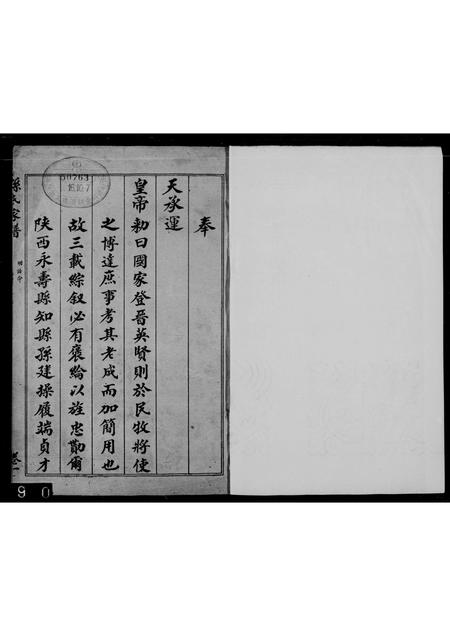 奉
天承運
皇帝勅曰國家登晉英賢則於民牧將使
之博達庶事考其老成而加簡用也
故三載綜叙必有褒綸以旌忠勤爾
陝西永壽縣知縣孫建操履端貞才
孫氏家譜
卷一
50763
15.10.7
9 0